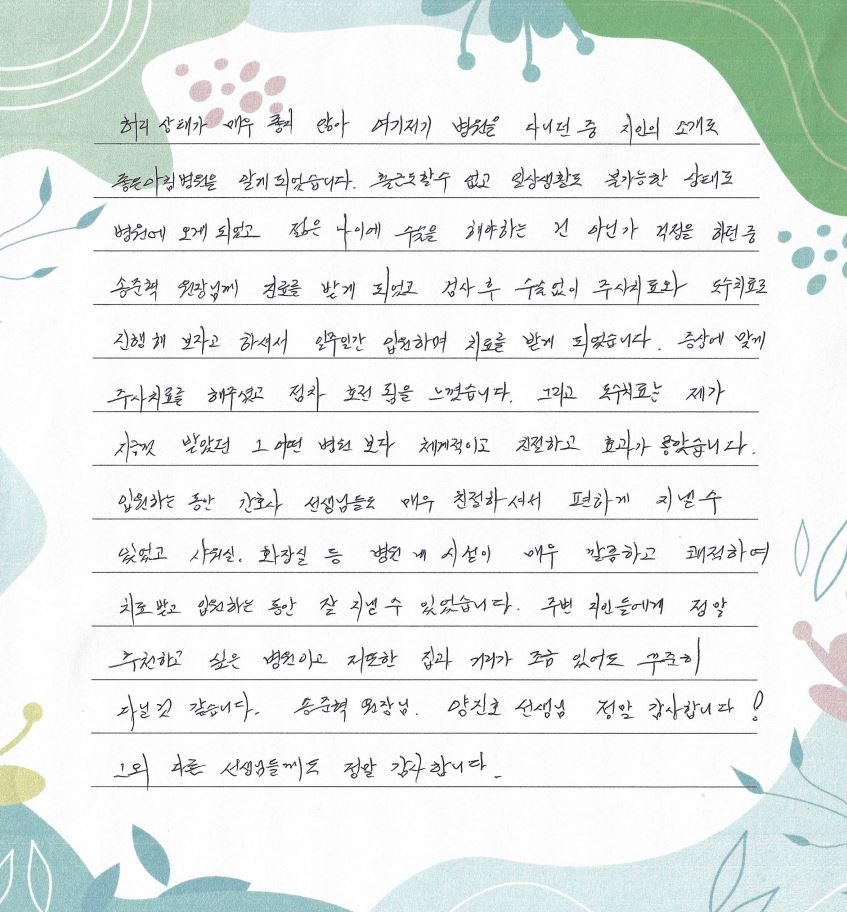 허리 상태가 매우 좋지 않아 여기저기 병원을 다니던 중 지인의 소개로
좋은아침병원을 알게 되었습니다. 출근도할수 없고 일상생활도 불가능한 상태로
병원에 오게 되었고 젊은 나이에 수술을 해야하는 건 아닌가 걱정을 하던 중
송준혁 원장님께 진료를 받게 되었고 검사 후 수술없이 주사치료와 도수치료로
진행해 보자고 하셔서 일주일간 입원하며 치료를 받게 되었습니다. 증상에 맞게
주사치료를 해주셨고 점차 호전 됨을 느꼈습니다. 그리고 도수치료는 제가
지금껏 받았던 그 어떤 병원 보다 체계적이고 친절하고 효과가 좋았습니다.
입원하는 동안 간호사 선생님들도 매우 친절하셔서 편하게 지낼 수
있었고 샤워실, 화장실 등 병원 내 시설이 매우 깔끔하고 쾌적하여
치료 받고 입원하는 동안 잘 지낼 수 있었습니다. 주변 지인들에게 정말
추천하고 싶은 병원이고 저또한 집과 거리가 조금 있어도 꾸준히
다닐 것 같습니다. 송준혁 원장님. 양진호 선생님 정말 감사합니다!
그외 다른 선생님들께도 정말 감사합니다.